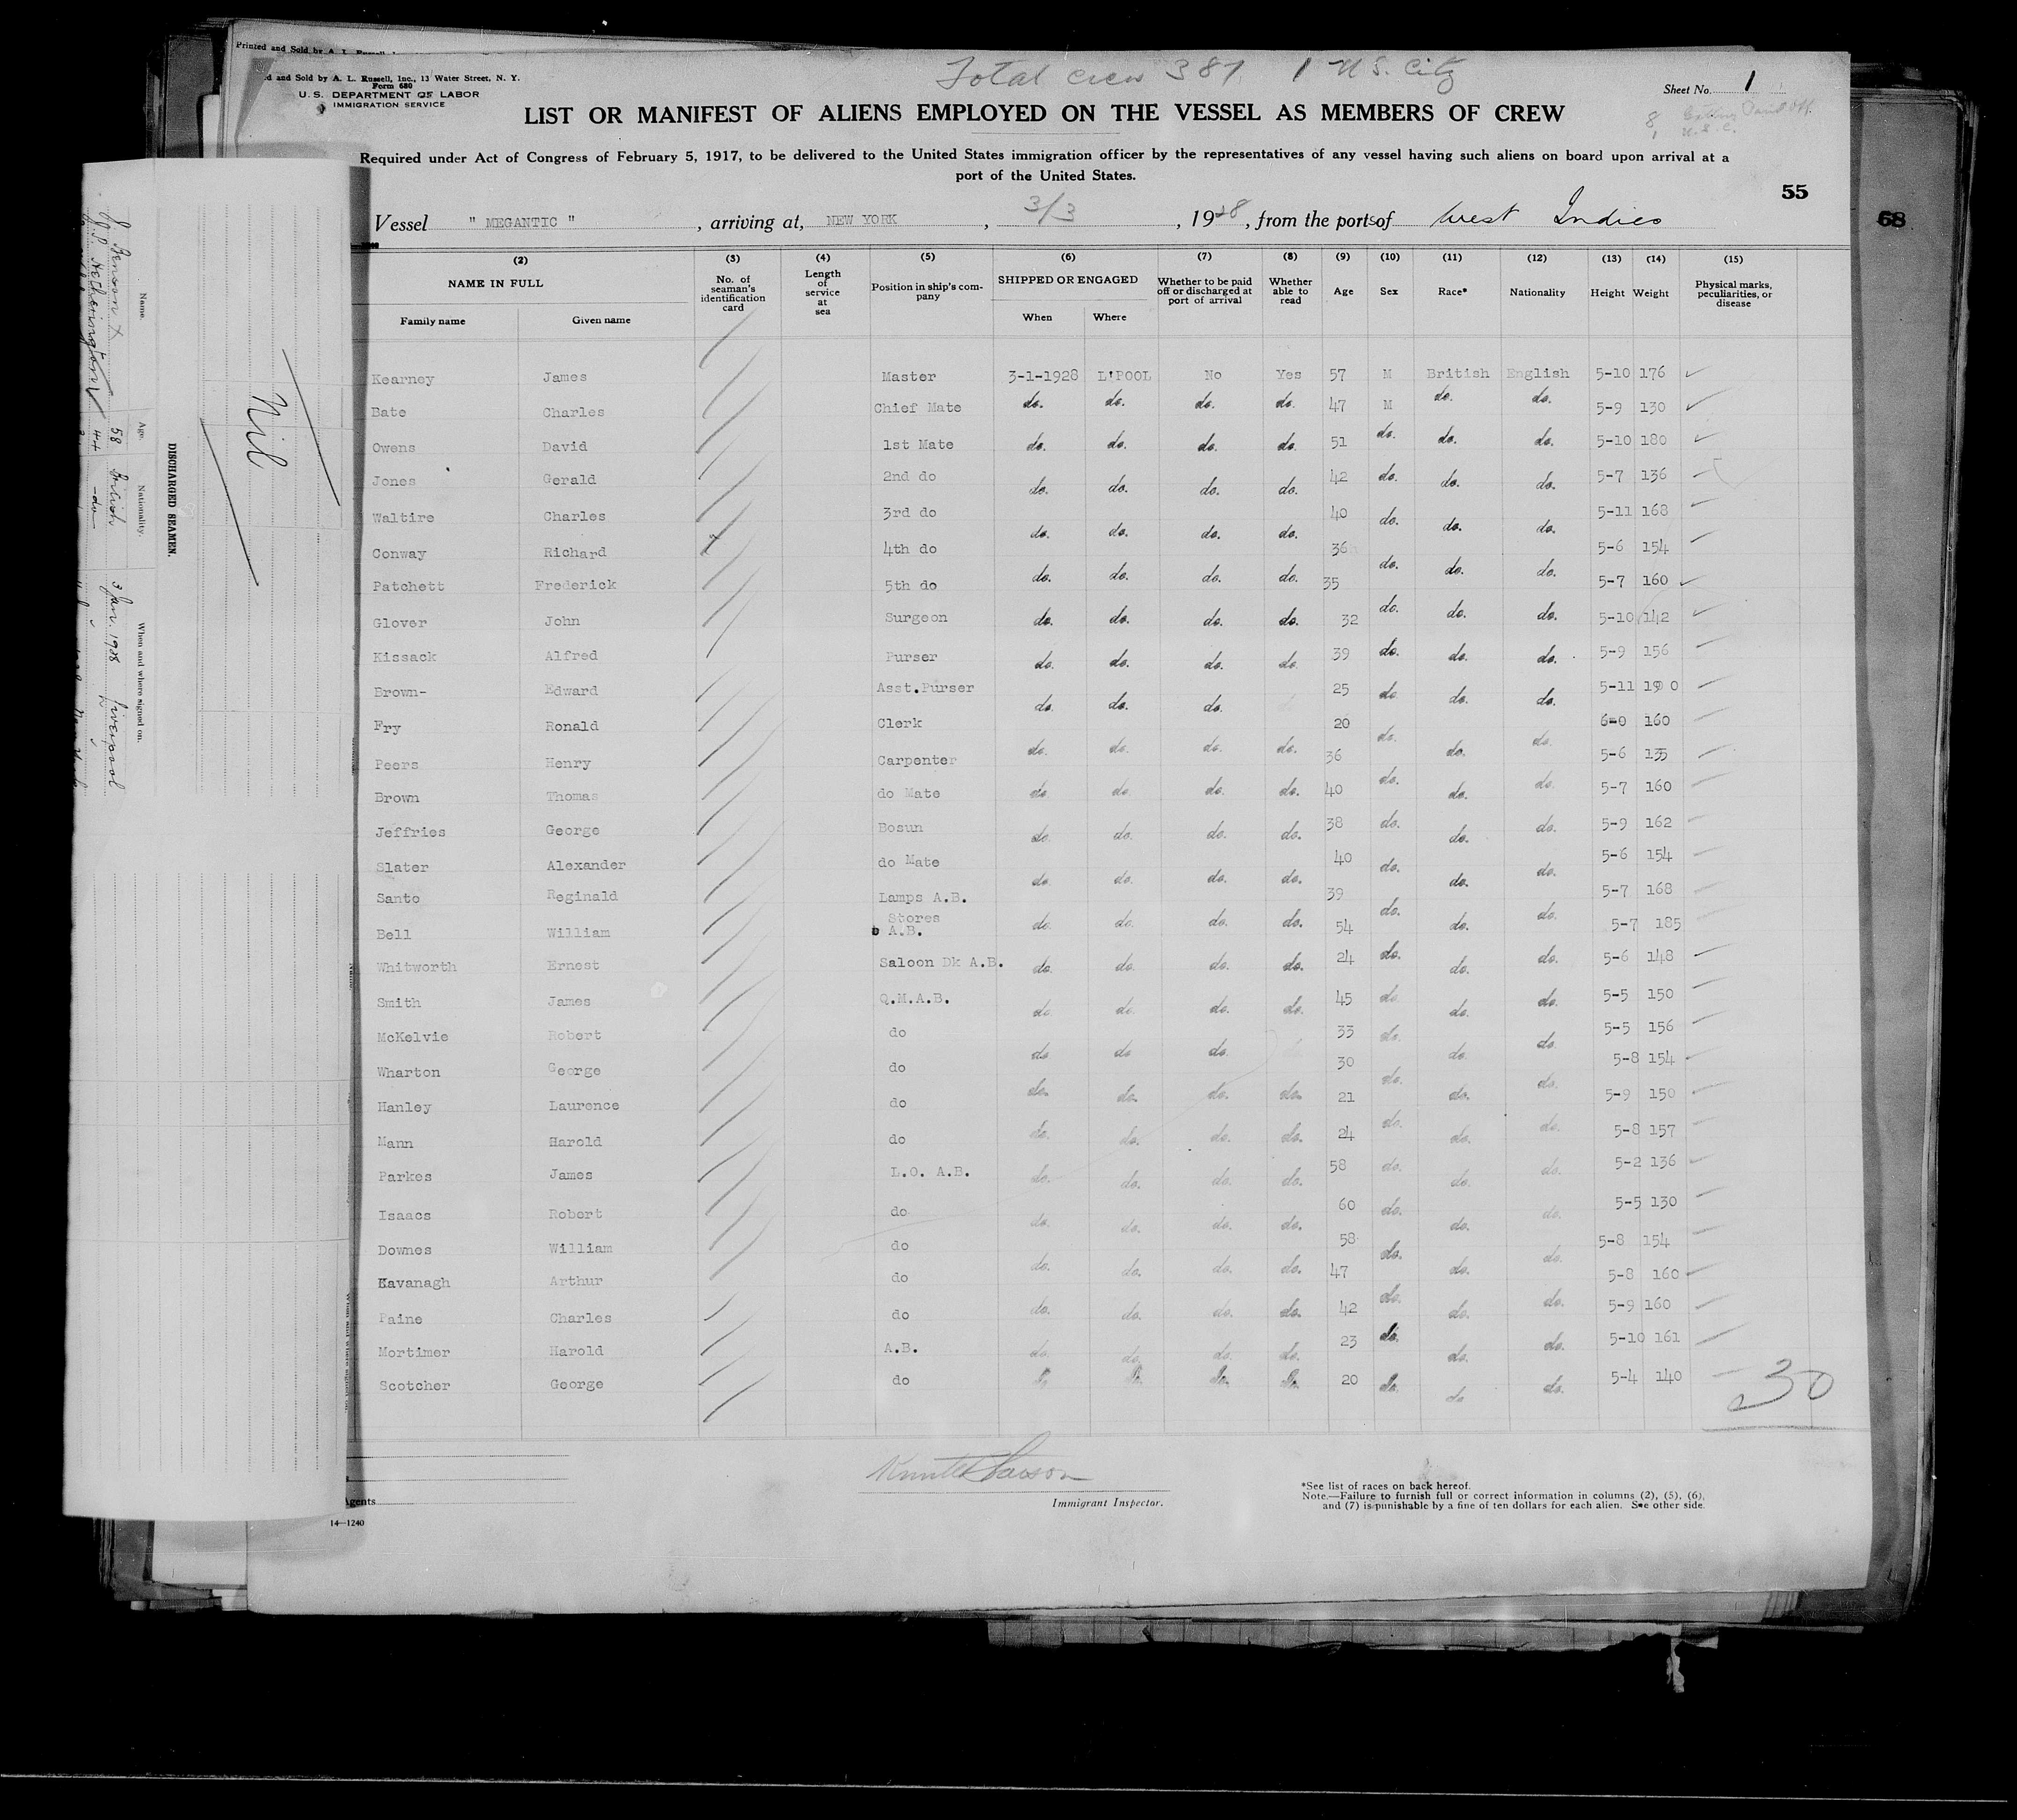 Printed and Sold by A. L.
d and Sold by A. L. Russell, Inc., 13 Water Street, N. Y.
Form 680
U. S. DEPARTMENT OF LABOR
IMMIGRATION SERVICE
Total crew 387 1 U.S. City
Sheet No. 1
LIST OR MANIFEST OF ALIENS EMPLOYED ON THE VESSEL AS MEMBERS OF CREW
Required under Act of Congress of February 5, 1917, to be delivered to the United States immigration officer by the representatives of any vessel having such aliens on board upon arrival at a
port of the United States.
55
68
Vessel " MEGANTIC " , arriving at, NEW YORK , 3/3 , 1928, from the ports of West Indies
(2) (3) (4) (5) (6) (7) (8) (9) (10) (11) (12) (13) (14) (15)
NAME IN FULL No. of seaman's identification card Length of service at sea Position in ship's company SHIPPED OR ENGAGED Whether to be paid off or discharged at port of arrival Whether able to read Age Sex Race* Nationality Height Weight Physical marks, peculiarities, or disease
Family name Given name When Where
Kearney James Master 3-1-1928 L'POOL No Yes 57 M British English 5-10 176
Bate Charles Chief Mate do. do. do. do. 47 M do. do. 5-9 130
Owens David 1st Mate do. do. do. do. 51 do. do. do. 5-10 180
Jones Gerald 2nd do do. do. do. do. 42 do. do. do. 5-7 136
Waltire Charles 3rd do do. do. do. do. 40 do. do. do. 5-11 168
Conway Richard 4th do do. do. do. do. 36 do. do. do. 5-6 154
Patchett Frederick 5th do do. do. do. do. 35 do. do. do. 5-7 160
Glover John Surgeon do. do. do. do. 32 do. do. do. 5-10 142
Kissack Alfred Purser do. do. do. do. 39 do. do. do. 5-9 156
Brown- Edward Asst.Purser do. do. do. 25 do. do. do. 5-11 190
Fry Ronald Clerk do. do. do. do. 20 do. do. do. 6-0 160
Peers Henry Carpenter do. do. do. do. 36 do. do. do. 5-6 135
Brown Thomas do Mate do. do. do. do. 40 do. do. do. 5-7 160
Jeffries George Bosun do. do. do. do. 38 do. do. do. 5-9 162
Slater Alexander do Mate do. do. do. do. 40 do. do. do. 5-6 154
Santo Reginald Lamps A.B. do. do. do. do. 39 do. do. do. 5-7 168
Bell William Stores A.B. do. do. do. do. 54 do. do. do. 5-7 185
Whitworth Ernest Saloon Dk A.B. do. do. do. do. 24 do. do. do. 5-6 148
Smith James Q.M.A.B. do. do. do. do. 45 do. do. do. 5-5 150
McKelvie Robert do do do do. 33 do. do. do. 5-5 156
Wharton George do do. do. do. do. 30 do. do. do. 5-8 154
Hanley Laurence do do. do. do. do. 21 do. do. do. 5-9 150
Mann Harold do do. do. do. do. 24 do. do. do. 5-8 157
Parkes James L.O. A.B. do. do. do. do. 58 do. do. do. 5-2 136
Isaacs Robert do do. do. do. do. 60 do. do. do. 5-5 130
Downes William do do. do. do. do. 58 do. do. do. 5-8 154
Kavanagh Arthur do do. do. do. do. 47 do. do. do. 5-8 160
Paine Charles do do. do. do. do. 42 do. do. do. 5-9 160
Mortimer Harold A.B. do. do. do. do. 23 do. do. do. 5-10 161
Scotcher George do do. do. do. do. 20 do. do. do. 5-4 140
30
Immigrant Inspector.
*See list of races on back hereof.
Note.—Failure to furnish full or correct information in columns (2), (5), (6),
and (7) is punishable by a fine of ten dollars for each alien. See other side.
Agents
14—1240
DISCHARGED SEAMEN.
Name. Age. Nationality. When and where signed on.
J. Benson 58 British 3 Jan. 1928 Liverpool
J.S. Hetherington 44 -do-
Nil